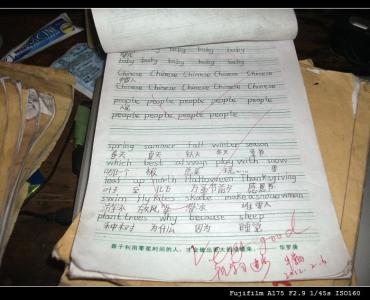 baby baby baby baby baby
baby baby baby baby baby
Chinese Chinese Chinese Chinese Chinese
中国人
Chinese Chinese Chinese Chinese Chinese
people people people people people
人民
people people people people people
spring summer fall winter season
春天 夏天 秋天 冬天 季节
which best always play with snow
哪一个 总是
leaf up north Halloween Thanksgiving
叶子 北方 万圣节前夕 感恩节
swim fly kites skate make a snowman
游泳 放风筝 滑冰 堆雪人
plant trees why because sleep
种树 为什么 因为 睡觉
善于利用零星时间的人，才会做出更大的成绩来。 华罗庚
Very good
Fujifilm A175 F2.9 1/45s ISO160